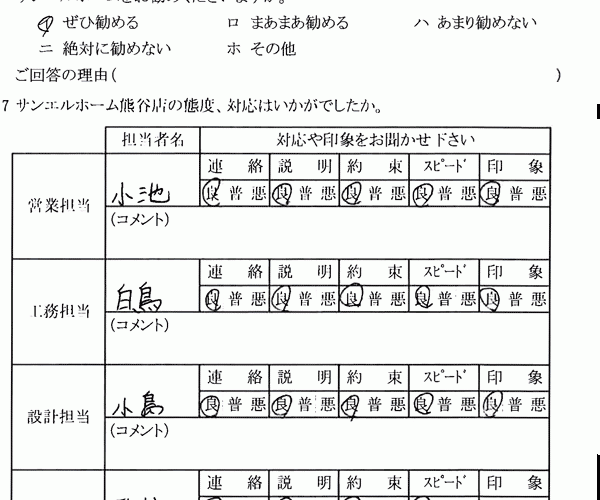 イ ぜひ勧める ロ まあまあ勧める ハ あまり勧めない
ニ 絶対に勧めない ホ その他
ご回答の理由( )
7 サンエルホーム熊谷店の態度、対応はいかがでしたか。
担当者名 対応や印象をお聞かせ下さい
連絡 説明 約束 スピード 印象
営業担当 小池 良普悪 良普悪 良普悪 良普悪 良普悪
(コメント)
連絡 説明 約束 スピード 印象
工務担当 白鳥 良普悪 良普悪 良普悪 良普悪 良普悪
(コメント)
連絡 説明 約束 スピード 印象
設計担当 小島 良普悪 良普悪 良普悪 良普悪 良普悪
(コメント)
連絡 説明 約束 スピード 印象